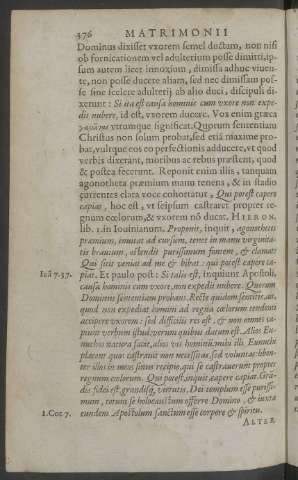 376 MATRIMONII
Dominus dixisset vxorem semel ductam, non nisi
ob fornicationem vel adulterium posse dimitti, ip-
sum autem licet innoxium, dimissa adhuc viuen-
te, non posse ducere aliam, sed nec dimissam pos-
se sine scelere adulterij ab alio duci, discipuli di-
xerunt: Si ita est causa hominis cum vxore non expe-
dit nubere, id est, vxorem ducere. Vox enim græca
vtrumque significat. Quorum sententiam
Christus non solum probat, sed etiã maxime pro-
bat, vultque eos eo perfectionis adducere, vt quod
verbis dixerant, moribus ac rebus præstent, quod
& postea fecerunt. Reponit enim illis, tanquam
agonotheta præmium manu tenens, & in stadio
currentes clara voce cohortatur, Qui potest capere
capiat, hoc est, vt seipsum castraret propter re-
gnum cœlorum, & vxorem nõ ducat. HIERON.
lib. 1. in Iouinianum. Proponit, inquit, agonothetes
præmium, inuitat ad cursum, tenet in manu virginita-
tis brauium, ostendit purissimum fontem, & clamat:
Qui sitit veniat ad me & bibat: qui potest capere ca-
Ioã 7. 37. piat. Et paulo post: Si talis est, inquiunt Apostoli,
causa hominis cum vxore, non expedit nubere. Quorum
Dominus sententiam probans. Recte quidem sentitis, ait,
quod non expediat homini ad regna cœlorum tendenti
accipere vxorem: sed difficilis res est, & non omnes ca-
piunt verbum istud, verum quibus datum est. Alios Eu-
nuchos natura facit, alios vis hominũ, mihi illi Eunuchi
placent quos castrauit non necessitas, sed voluntas: liben-
ter illos in meos sinus recipio, qui se castrauerunt propter
regnum cœlorum. Qui potest, inquit, capere capiat. Grã-
dis fidei est, grandisq́; virtutis. Dei templum esse purissi-
mum, totum se holocaustum offerre Domino, & iuxta
1. Cor. 7. eundem Apostolum sanctum esse corpore & spiritu.
ALTER